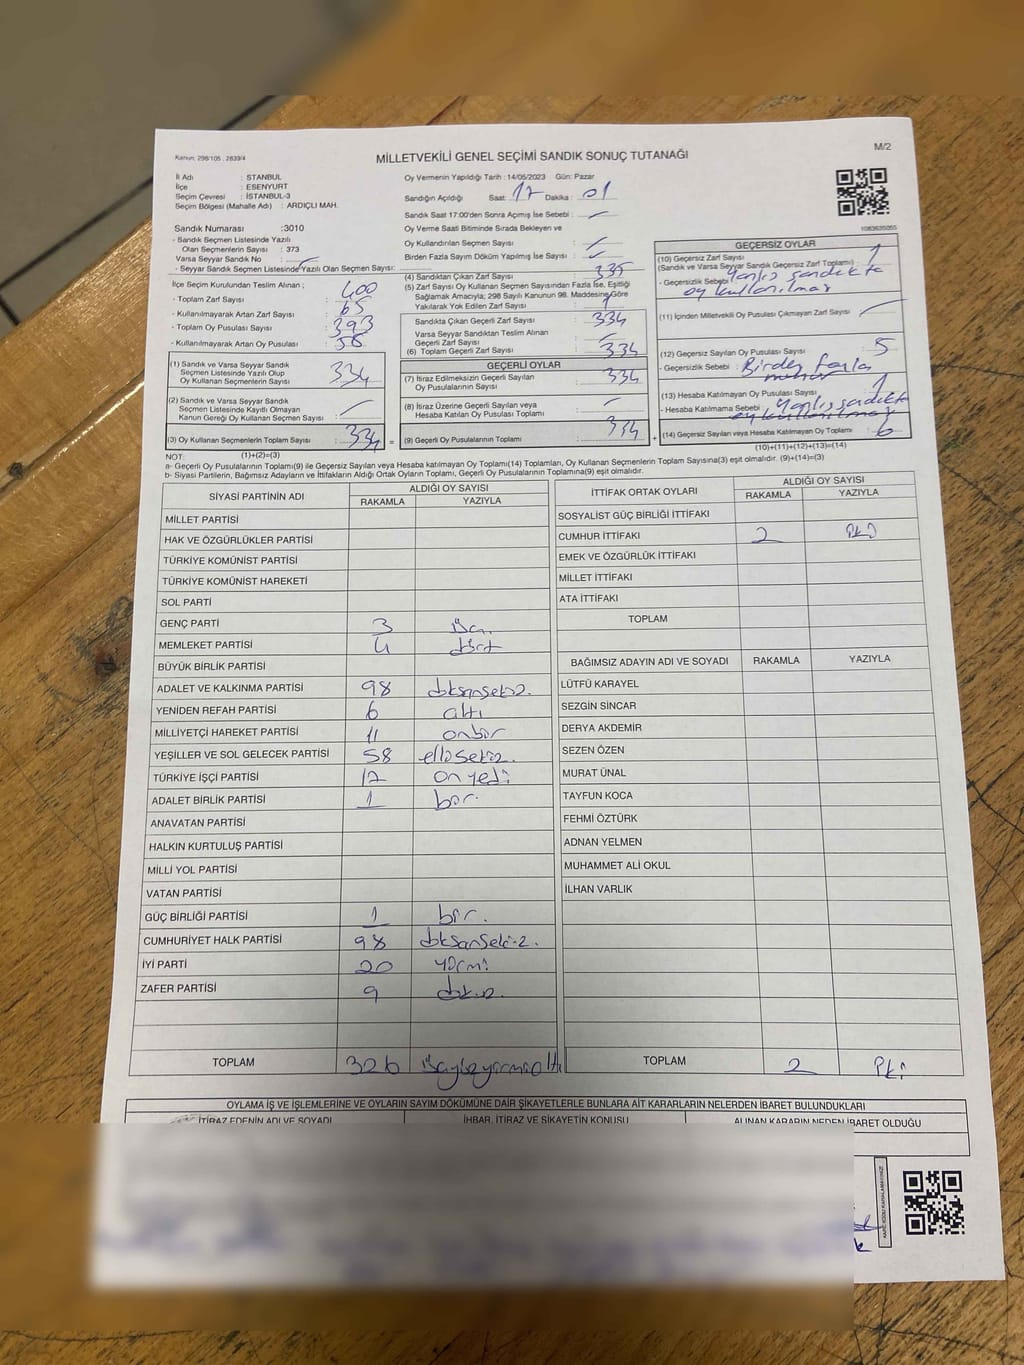 Kanun: 298/105 , 2839/4
MİLLETVEKİLİ GENEL SEÇİMİ SANDIK SONUÇ TUTANAĞI
M/2
İl Adı : STANBUL
İlçe : ESENYURT
Seçim Çevresi : İSTANBUL-3
Seçim Bölgesi (Mahalle Adı) : ARDIÇLI MAH.
Sandık Numarası :3010
- Sandık Seçmen Listesinde Yazılı
Olan Seçmenlerin Sayısı : 373
Varsa Seyyar Sandık No :
- Seyyar Sandık Seçmen Listesinde Yazılı Olan Seçmen Sayısı:
İlçe Seçim Kurulundan Teslim Alınan ;
- Toplam Zarf Sayısı : 400
- Kullanılmayarak Artan Zarf Sayısı : 65
- Toplam Oy Pusulası Sayısı : 393
- Kullanılmayarak Artan Oy Pusulası : 58
(1) Sandık ve Varsa Seyyar Sandık
Seçmen Listesinde Yazılı Olup
Oy Kullanan Seçmenlerin Sayısı : 334
(2) Sandık ve Varsa Seyyar Sandık
Seçmen Listesinde Kayıtlı Olmayan
Kanun Gereği Oy Kullanan Seçmen Sayısı :
(3) Oy Kullanan Seçmenlerin Toplam Sayısı : 334 =
Oy Vermenin Yapıldığı Tarih : 14/05/2023 Gün: Pazar
Sandığın Açıldığı Saat: 17 Dakika : 01
Sandık Saat 17:00'den Sonra Açımış İse Sebebi :
Oy Verme Saati Bitiminde Sırada Bekleyen ve
Oy Kullandırılan Seçmen Sayısı :
Birden Fazla Sayım Döküm Yapılmış İse Sayısı :
(4) Sandıktan Çıkan Zarf Sayısı : 335
(5) Zarf Sayısı Oy Kullanan Seçmen Sayısından Fazla İse, Eşitliği
Sağlamak Amacıyla; 298 Sayılı Kanunun 98. Maddesine Göre
Yakılarak Yok Edilen Zarf Sayısı : 1
Sandıkta Çıkan Geçerli Zarf Sayısı : 334
Varsa Seyyar Sandıktan Teslim Alınan
Geçerli Zarf Sayısı :
(6) Toplam Geçerli Zarf Sayısı : 334
GEÇERLİ OYLAR
(7) İtiraz Edilmeksizin Geçerli Sayılan
Oy Pusulalarının Sayısı : 334
(8) İtiraz Üzerine Geçerli Sayılan veya
Hesaba Katılan Oy Pusulası Toplamı :
(9) Geçerli Oy Pusulalarının Toplamı : 334 +
1083635055
GEÇERSİZ OYLAR
(10) Geçersiz Zarf Sayısı
(Sandık ve Varsa Seyyar Sandık Geçersiz Zarf Toplamı) : 1
- Geçersizlik Sebebi : Yanlış sandıkta
oy kullanılması
(11) İçinden Milletvekili Oy Pusulası Çıkmayan Zarf Sayısı :
(12) Geçersiz Sayılan Oy Pusulası Sayısı : 5
- Geçersizlik Sebebi : Birden fazla
mühür
(13) Hesaba Katılmayan Oy Pusulası Sayısı : 1
- Hesaba Katılmama Sebebi : Yanlış sandıkta
oy kullanılması
(14) Geçersiz Sayılan veya Hesaba Katılmayan Oy Toplamı : 6
(1)+(2)=(3)
(10)+(11)+(12)+(13)=(14)
NOT:
a- Geçerli Oy Pusulalarının Toplamı(9) ile Geçersiz Sayılan veya Hesaba katılmayan Oy Toplamı(14) Toplamları, Oy Kullanan Seçmenlerin Toplam Sayısına(3) eşit olmalıdır. (9)+(14)=(3)
b- Siyasi Partilerin, Bağımsız Adayların ve İttifakların Aldığı Ortak Oyların Toplamı, Geçerli Oy Pusulalarının Toplamına(9) eşit olmalıdır.
SİYASİ PARTİNİN ADI ALDIĞI OY SAYISI
RAKAMLA YAZIYLA
MİLLET PARTİSİ
HAK VE ÖZGÜRLÜKLER PARTİSİ
TÜRKİYE KOMÜNİST PARTİSİ
TÜRKİYE KOMÜNİST HAREKETİ
SOL PARTİ
GENÇ PARTİ 3 üç
MEMLEKET PARTİSİ 4 dört
BÜYÜK BİRLİK PARTİSİ
ADALET VE KALKINMA PARTİSİ 98 doksansekiz.
YENİDEN REFAH PARTİSİ 6 altı
MİLLİYETÇİ HAREKET PARTİSİ 11 onbir
YEŞİLLER VE SOL GELECEK PARTİSİ 58 ellisekiz.
TÜRKİYE İŞÇİ PARTİSİ 17 on yedi
ADALET BİRLİK PARTİSİ 1 bir.
ANAVATAN PARTİSİ
HALKIN KURTULUŞ PARTİSİ
MİLLİ YOL PARTİSİ
VATAN PARTİSİ
GÜÇ BİRLİĞİ PARTİSİ 1 bir.
CUMHURİYET HALK PARTİSİ 98 doksansekiz.
İYİ PARTİ 20 yirmi
ZAFER PARTİSİ 9 dokuz.
TOPLAM 326 üçyüzyirmialtı
İTTİFAK ORTAK OYLARI ALDIĞI OY SAYISI
RAKAMLA YAZIYLA
SOSYALİST GÜÇ BİRLİĞİ İTTİFAKI
CUMHUR İTTİFAKI 2 iki
EMEK VE ÖZGÜRLÜK İTTİFAKI
MİLLET İTTİFAKI
ATA İTTİFAKI
TOPLAM
BAĞIMSIZ ADAYIN ADI VE SOYADI RAKAMLA YAZIYLA
LÜTFÜ KARAYEL
SEZGİN SİNCAR
DERYA AKDEMİR
SEZEN ÖZEN
MURAT ÜNAL
TAYFUN KOCA
FEHMİ ÖZTÜRK
ADNAN YELMEN
MUHAMMET ALİ OKUL
İLHAN VARLIK
TOPLAM 2 iki
OYLAMA İŞ VE İŞLEMLERİNE VE OYLARIN SAYIM DÖKÜMÜNE DAİR ŞİKAYETLERLE BUNLARA AİT KARARLARIN NELERDEN İBARET BULUNDUKLARI
İTİRAZ EDENİN ADI VE SOYADI İHBAR, İTİRAZ VE ŞİKAYETİN KONUSU ALINAN KARARIN NEDEN İBARET OLDUĞU